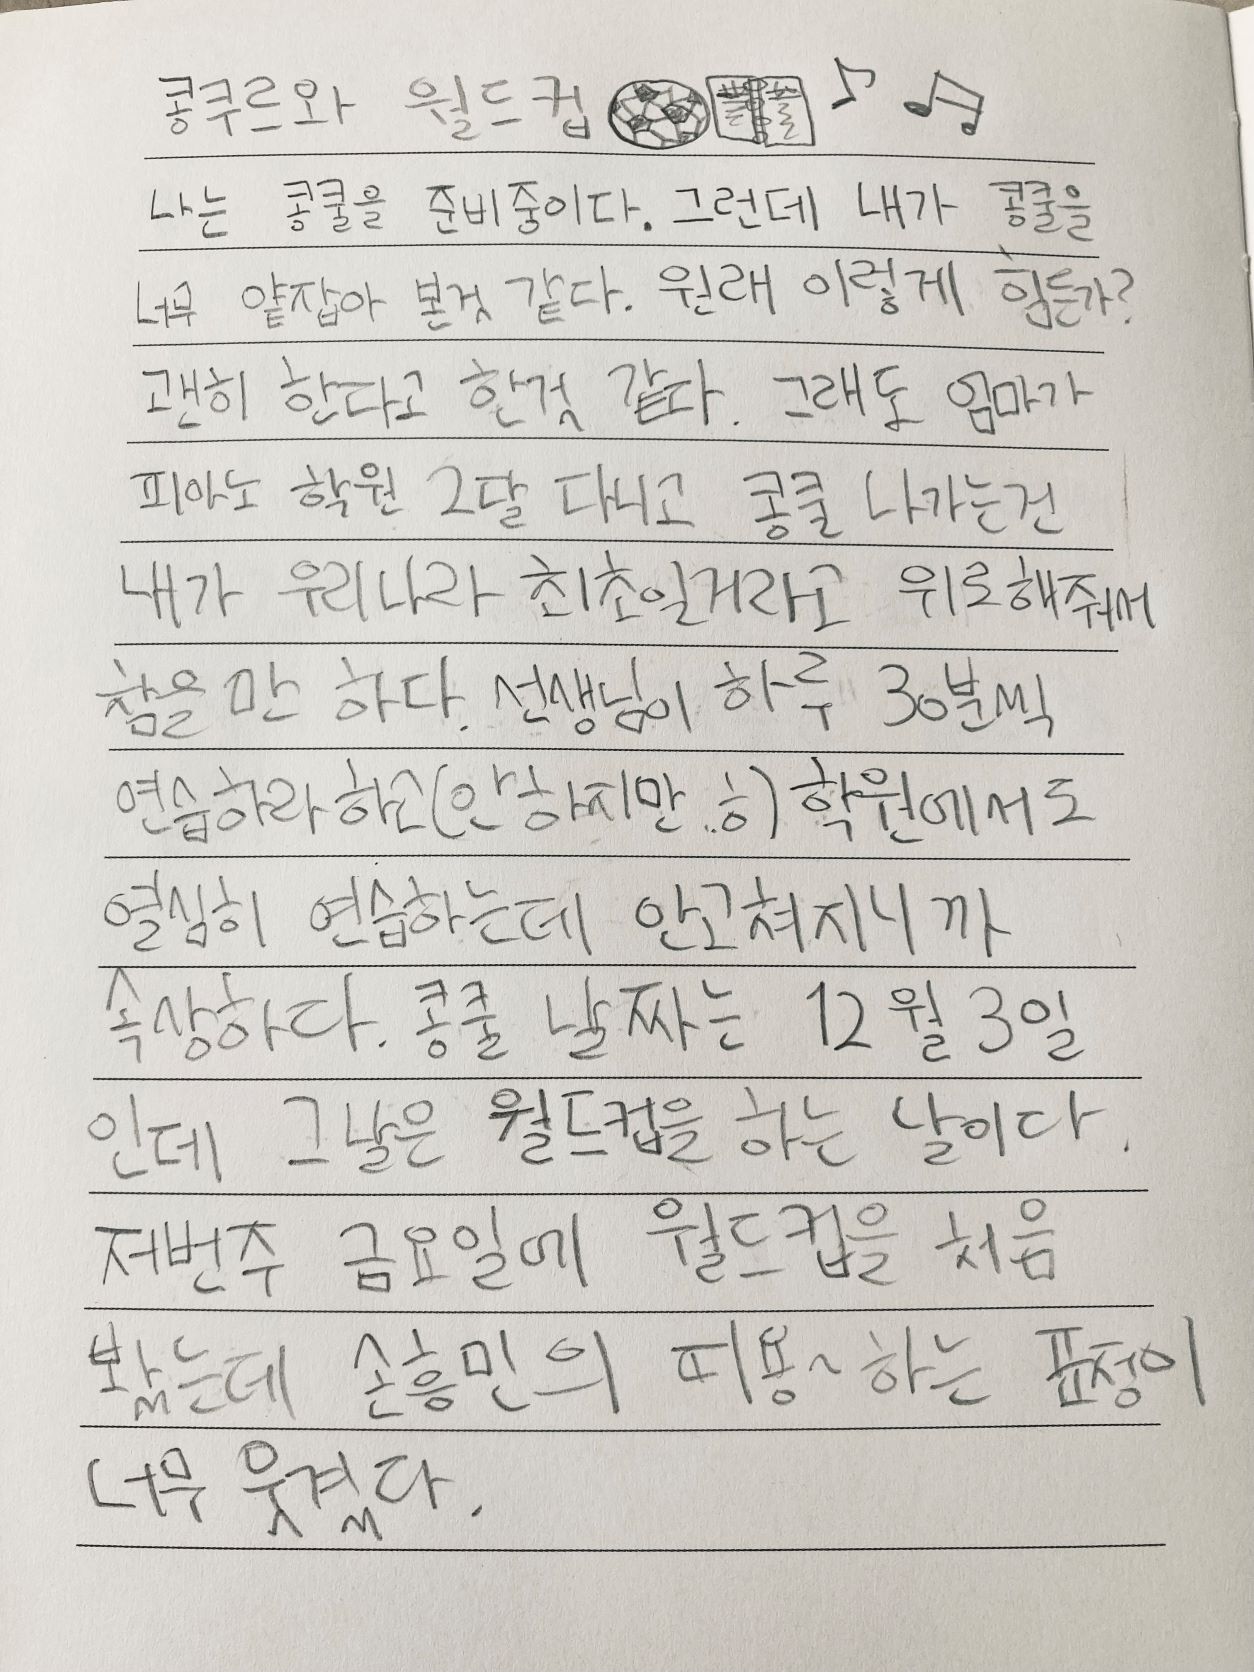 콩쿠르와 월드컵
나는 콩쿨을 준비중이다. 그런데 내가 콩쿨을
너무 얕잡아 본것 같다. 원래 이렇게 힘든가?
괜히 한다고 한것 같다. 그래도 엄마가
피아노 학원 2달 다니고 콩쿨 나가는건
내가 우리나라 최초일거라고 위로해줘서
참을 만 하다. 선생님이 하루 30분씩
연습하라하고(안하지만..ㅎ) 학원에서도
열심히 연습하는데 안고쳐지니까
속상하다. 콩쿨 날짜는 12월 3일
인데 그날은 월드컵을 하는 날이다.
저번주 금요일에 월드컵을 처음
봤는데 손흥민의 띠용~하는 표정이
너무 웃겼다.